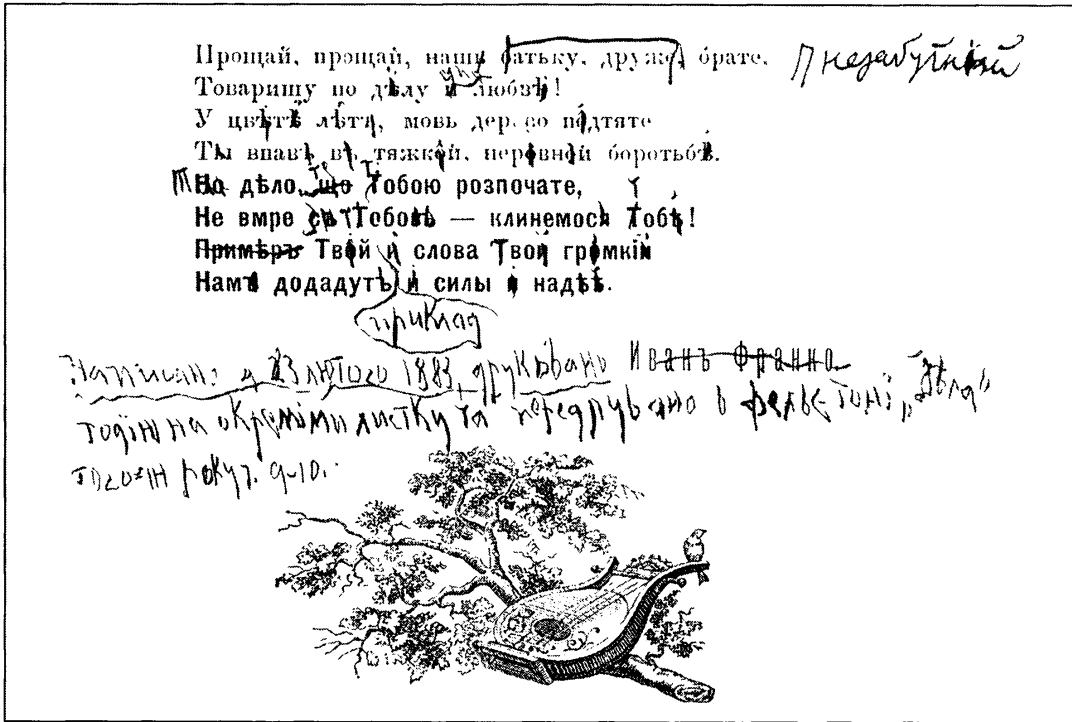 Прощай, прощай, нашъ батьку, друже, брате, незабутній
Товаришу по дѣлу и любвѣ!
У цвѣтѣ лѣтъ, мовь дерево підтяте
Ты впавъ въ тяжкôй, нерôвнôй боротьбѣ.
Но дѣло, що Тобою розпочате,
Не вмре съ Тобовъ — клинемося Тобѣ!
Примѣръ Твôй и слова Твои грôмкіи
Намъ додадуть и силы и надѣѣ.
приклад
Написано д. 23 лютого 1883, друковано Иванъ Франко
тодї на окремім листку та передруковано в фельєтонї „Дѣла”
того ж року ч. 9-10.